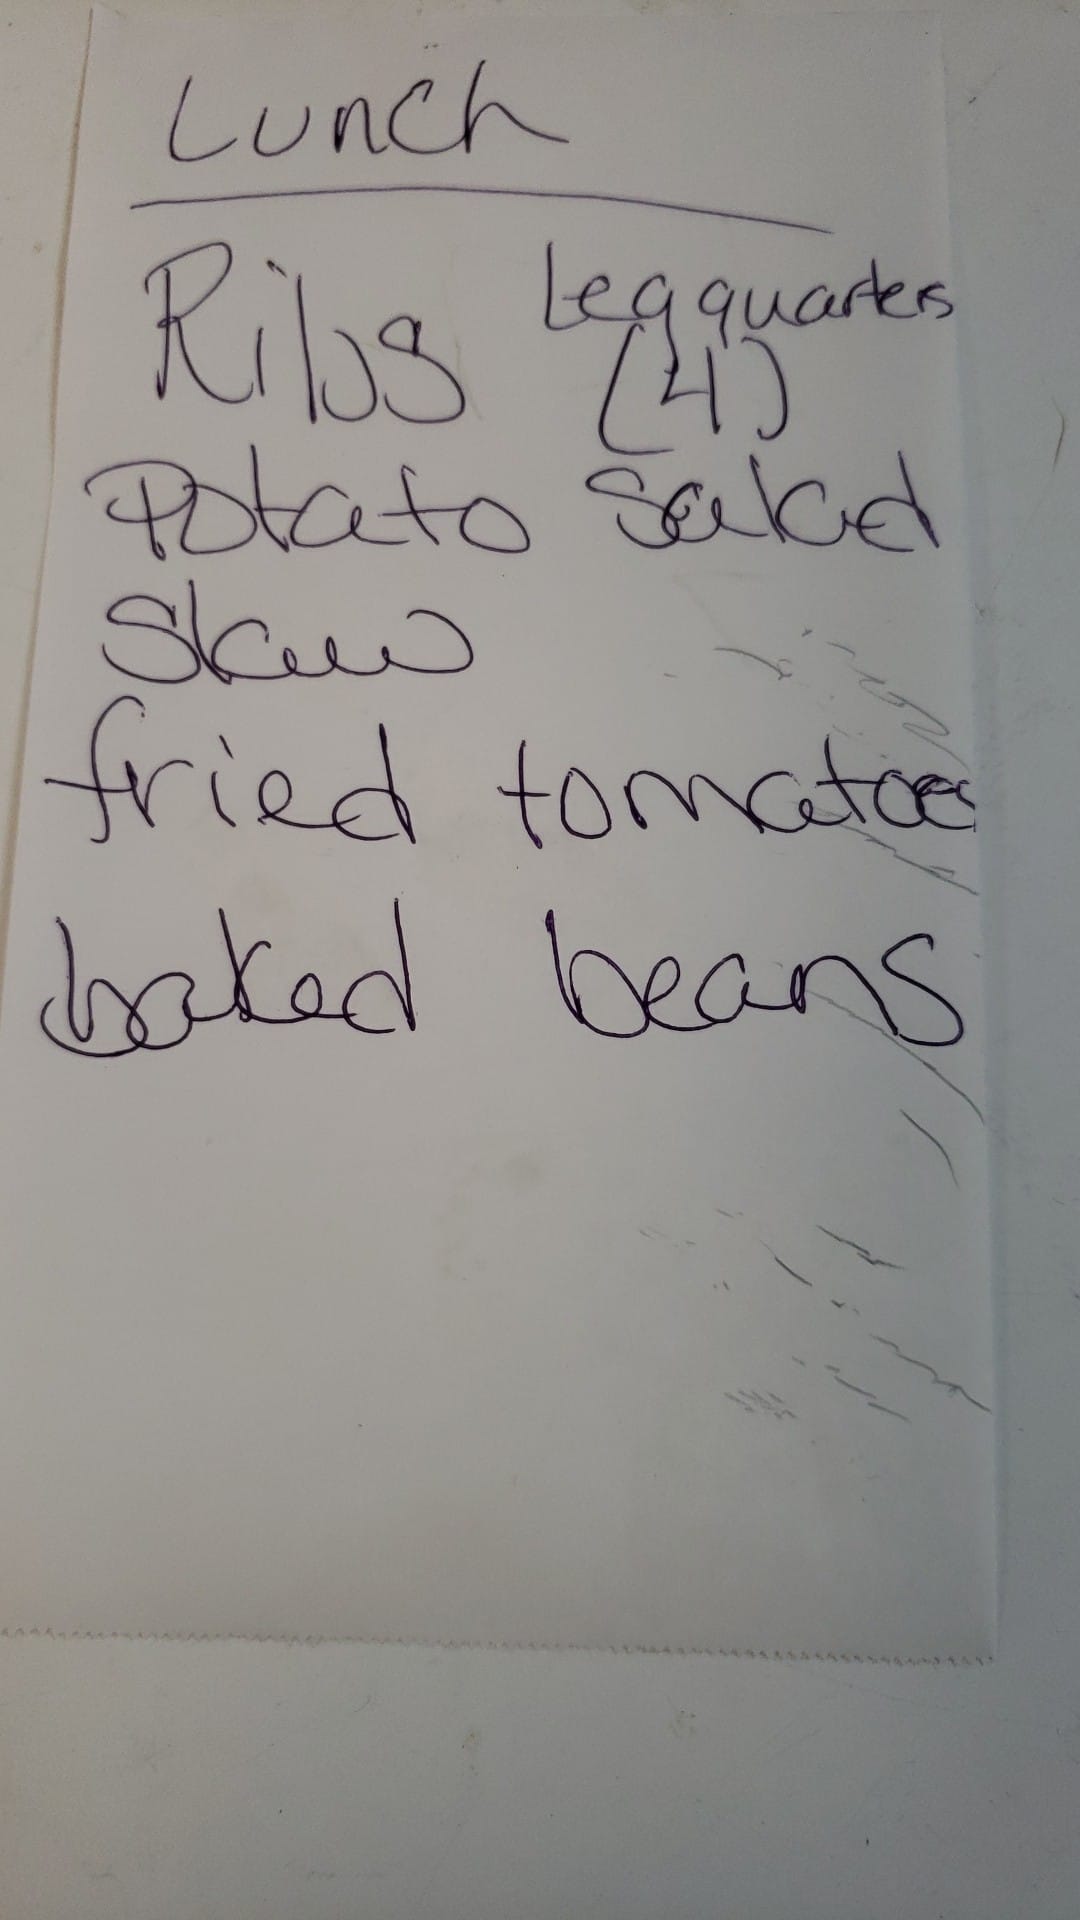 Lunch
Ribs Leg quarters
(4)
Potato Salad
Slaw
fried tomatoes
baked beans